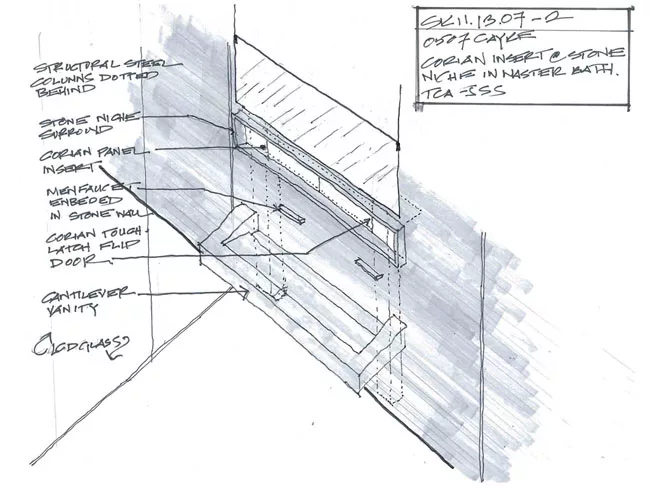 SK11.13.07-2
0507 CAYRE
CORIAN INSERT @ STONE
NICHE IN MASTER BATH.
TCA - JSS
STRUCTURAL STEEL
COLUMNS DOTTED
BEHIND
STONE NICHE
SURROUND
CORIAN PANEL
INSERT
FAUCET
EMBEDED
IN STONE WALL
CORIAN TOUCH-
LATCH FLIP
DOOR
CANTILEVER
VANITY